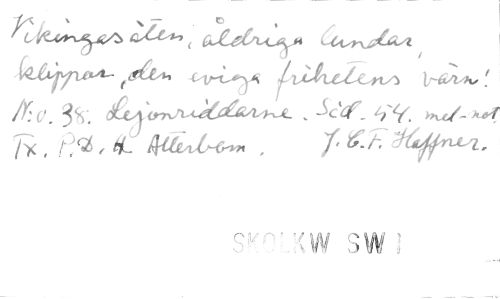 Vikingasäten, åldriga lundar,
klippor, den eviga frihetens värn!
N:o. 38. Lejonriddarne. Sid. 54. mel-not.
Tx. P. D. A. Atterbom. J. C. F. Haffner.
SKOLKW SW 1